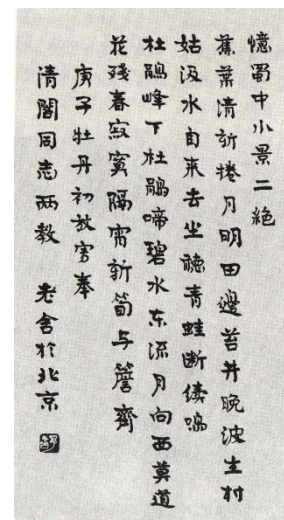 憶蜀中小景二絶
蕉葉清新捲月明田邊苔井晚波生村
姑汲水自来去坐聽青蛙断續鳴
杜鵑峰下杜鵑啼碧水东流月向西莫道
花殘春寂寞隔宵新筍与簷齊
庚子牡丹初放寫奉
清閣同志两教 老舍於北京